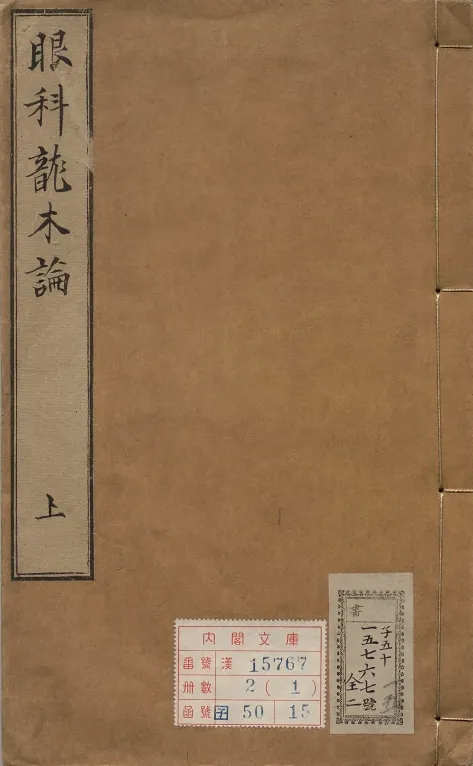 眼科龍木論
上
內閣文庫
番號 漢 15767
冊數 2(1)
函號 子 50 15
書
子五十
一五七六七號
全二